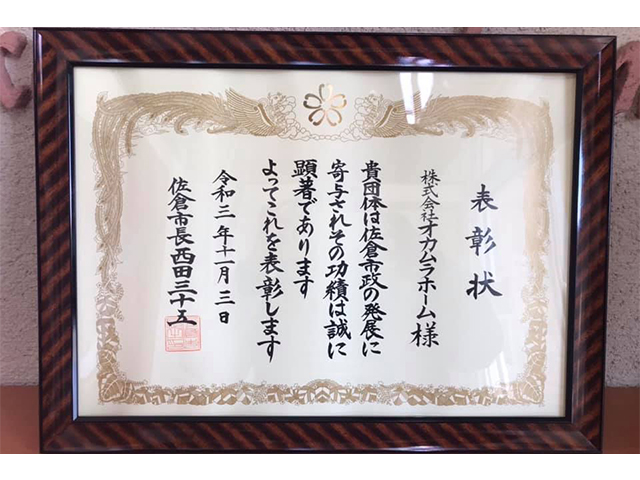 表彰状
株式会社オカムラホーム様
貴団体は佐倉市政の発展に
寄与されその功績は誠に
顕著であります
よってこれを表彰します
令和三年十一月三日
佐倉市長 西田三十五